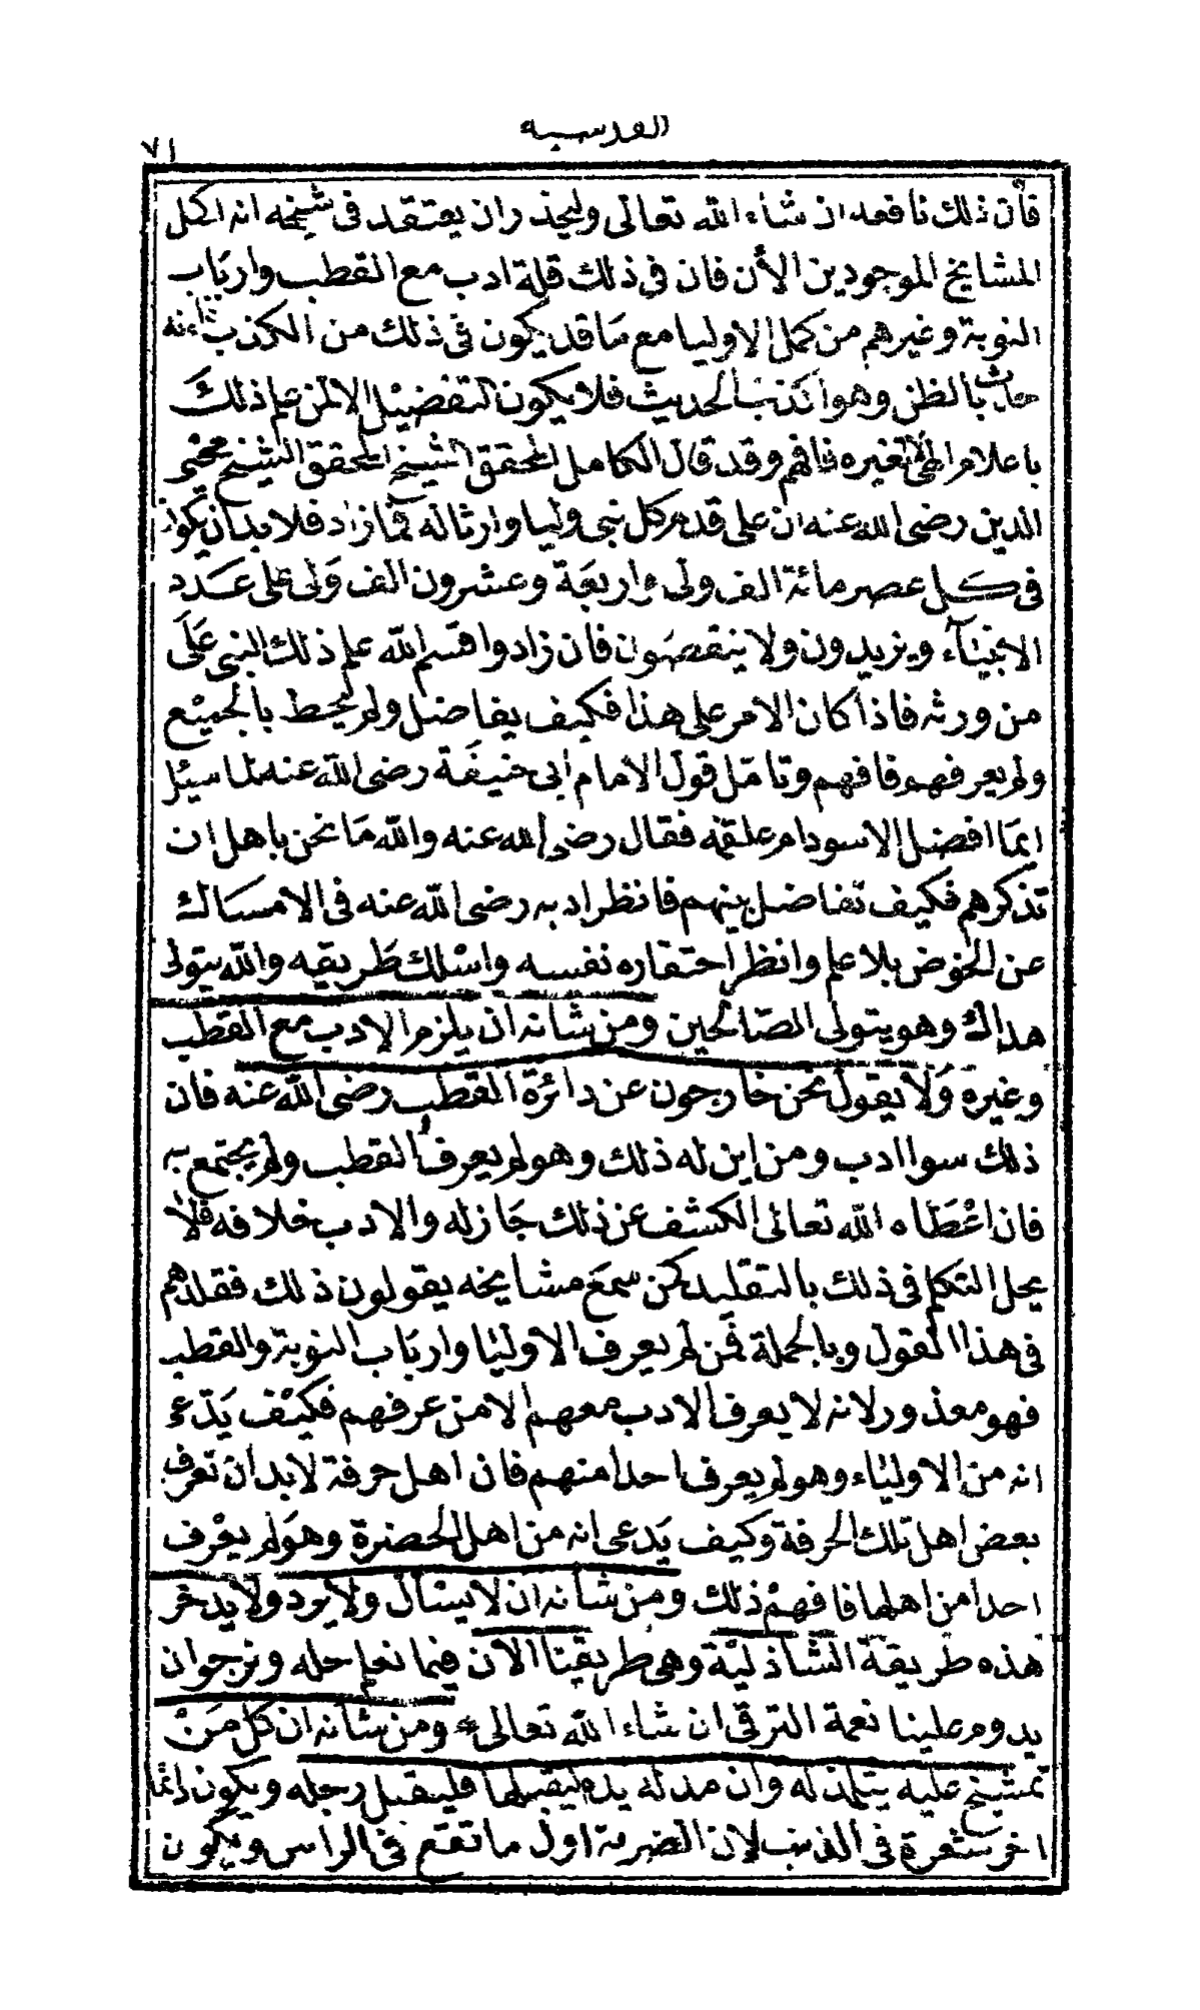 القدسية
٧١
فأن ذلك نافعه ان شاء الله تعالى وليحذران يعتقد فى شيخه انه اكمل
المشايخ الموجودين الأن فان فى ذلك قلة ادب مع القطب وارباب
النوبة وغيرهم من كمل الاوليا مع ما قد يكون فى ذلك من الكذب
بالظن وهو اكذب الحديث فلا يكون التفضيل الا لمن علم ذلك
باعلام الهى لا تغيره فافهم وقد قال الكامل المحقق الشيخ المحقق الشيخ محيى
الدين رضى الله عنه ان على قدم كل نبى وليا وارثا له فما زاد فلا بد ان يكون
فى كل عصر مائة الف ولى واربعة وعشرون الف ولى على عدد
الانبيآء ويزيدون ولا ينقصون فان زادوا قسم الله علم ذلك النبى على
من ورثه فاذا كان الامر على هذا فكيف يفاضل ولم يحط بالجميع
ولم يعرفهم فافهم وتامل قول الامام ابى حنيفة رضى الله عنه لما سيئل
ايما افضل الاسود ام علقمة فقال رضى الله عنه والله ما نحن باهل ان
نذكرهم فكيف نفاضل بينهم فانظر ادبه رضى الله عنه فى الامساك
عن الخوض بلا علم وانظر احتقاره نفسه واسلك طريقه والله يتولى
هداك وهو يتولى الصالحين ومن شانه ان يلزم الادب مع القطب
وغيره ولا يقول نحن خارجون عن دائرة القطب رضى الله عنه فان
ذلك سوا ادب ومن اين له ذلك وهو لم يعرف القطب ولم يجتمع به
فان اعطاه الله تعالى الكشف عن ذلك جاز له والادب خلافه فلا
يحل التكلم فى ذلك بالتقليد كمن سمع مشايخه يقولون ذلك فقلدهم
فى هذا القول وبالجملة فمن لم يعرف الاوليا وارباب النوبة والقطب
فهو معذور لانه لا يعرف الادب معهم الا من عرفهم فكيف يدعى
انه من الاولياء وهو لم يعرف احدا منهم فان اهل حرفة لابد ان تعرف
بعض اهل تلك الحرفة وكيف يدعى انه من اهل الحضرة وهو لم يعرف
احدا من اهلها فافهم ذلك ومن شأنه ان لا يسئال ولا يرد ولا يدخر
هذه طريقة الشاذلية وهى طريقنا الآن فيما نعلم حله ونرجوا ان
يدوم علينا نعمة الترقى ان شاء الله تعالى ومن شانه ان كل من
تمشيخ عليه يتلمذ له وان مد له يده ليقبلها فليقبل رجله ويكون دائما
اخر شعرة فى الذنب لان الضربة اول ما تقع فى الراس ويكون